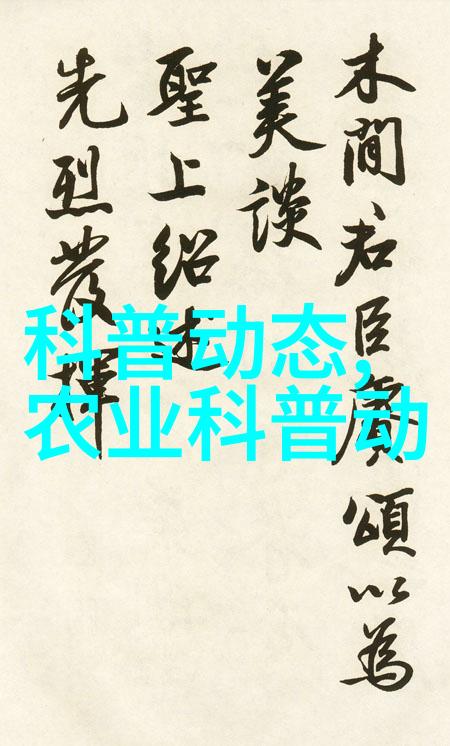 木間君臣頌以為
美談
聖上紹述
先烈發揮
科普动态,
农业科普动